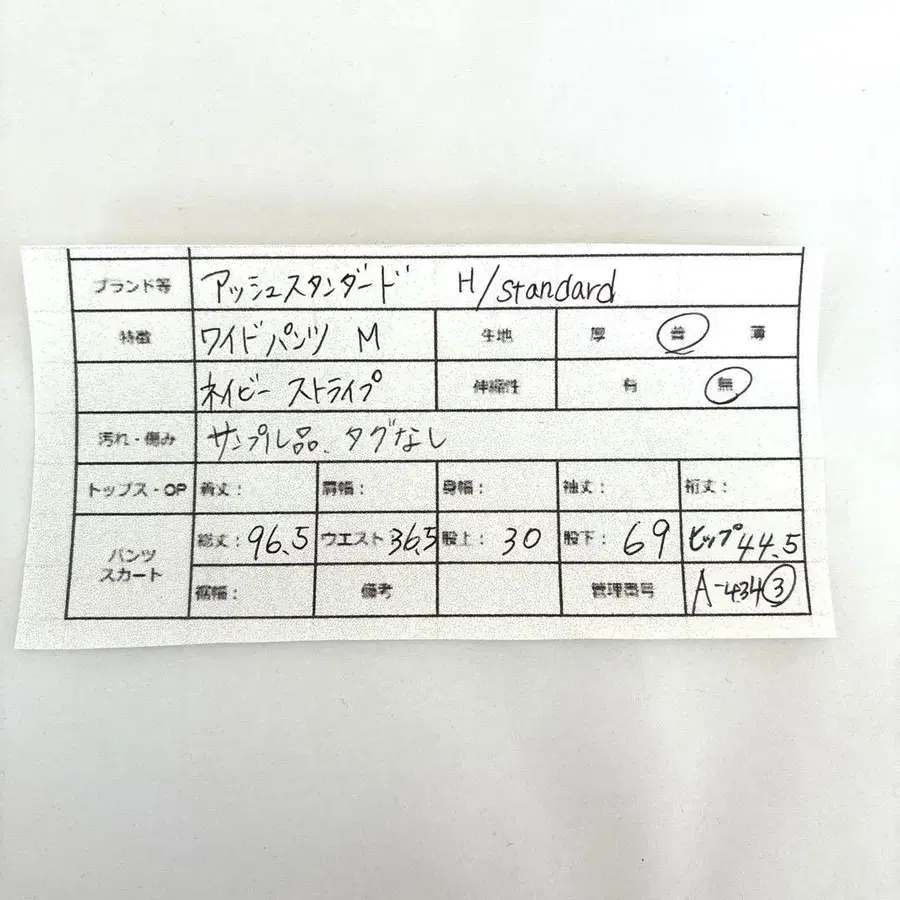 ブランド等 アッシュスタンダード H/standard
特徴 ワイドパンツ M 生地 厚 普 薄
ネイビー ストライプ 伸縮性 有 無
汚れ・傷み サンプル品、タグなし
トップス・OP 着丈: 肩幅: 身幅: 袖丈: 裄丈:
パンツ スカート
総丈: 96.5 ウエスト 36.5 股上: 30 股下: 69 ヒップ 44.5
裾幅: 備考 管理番号 A-434③